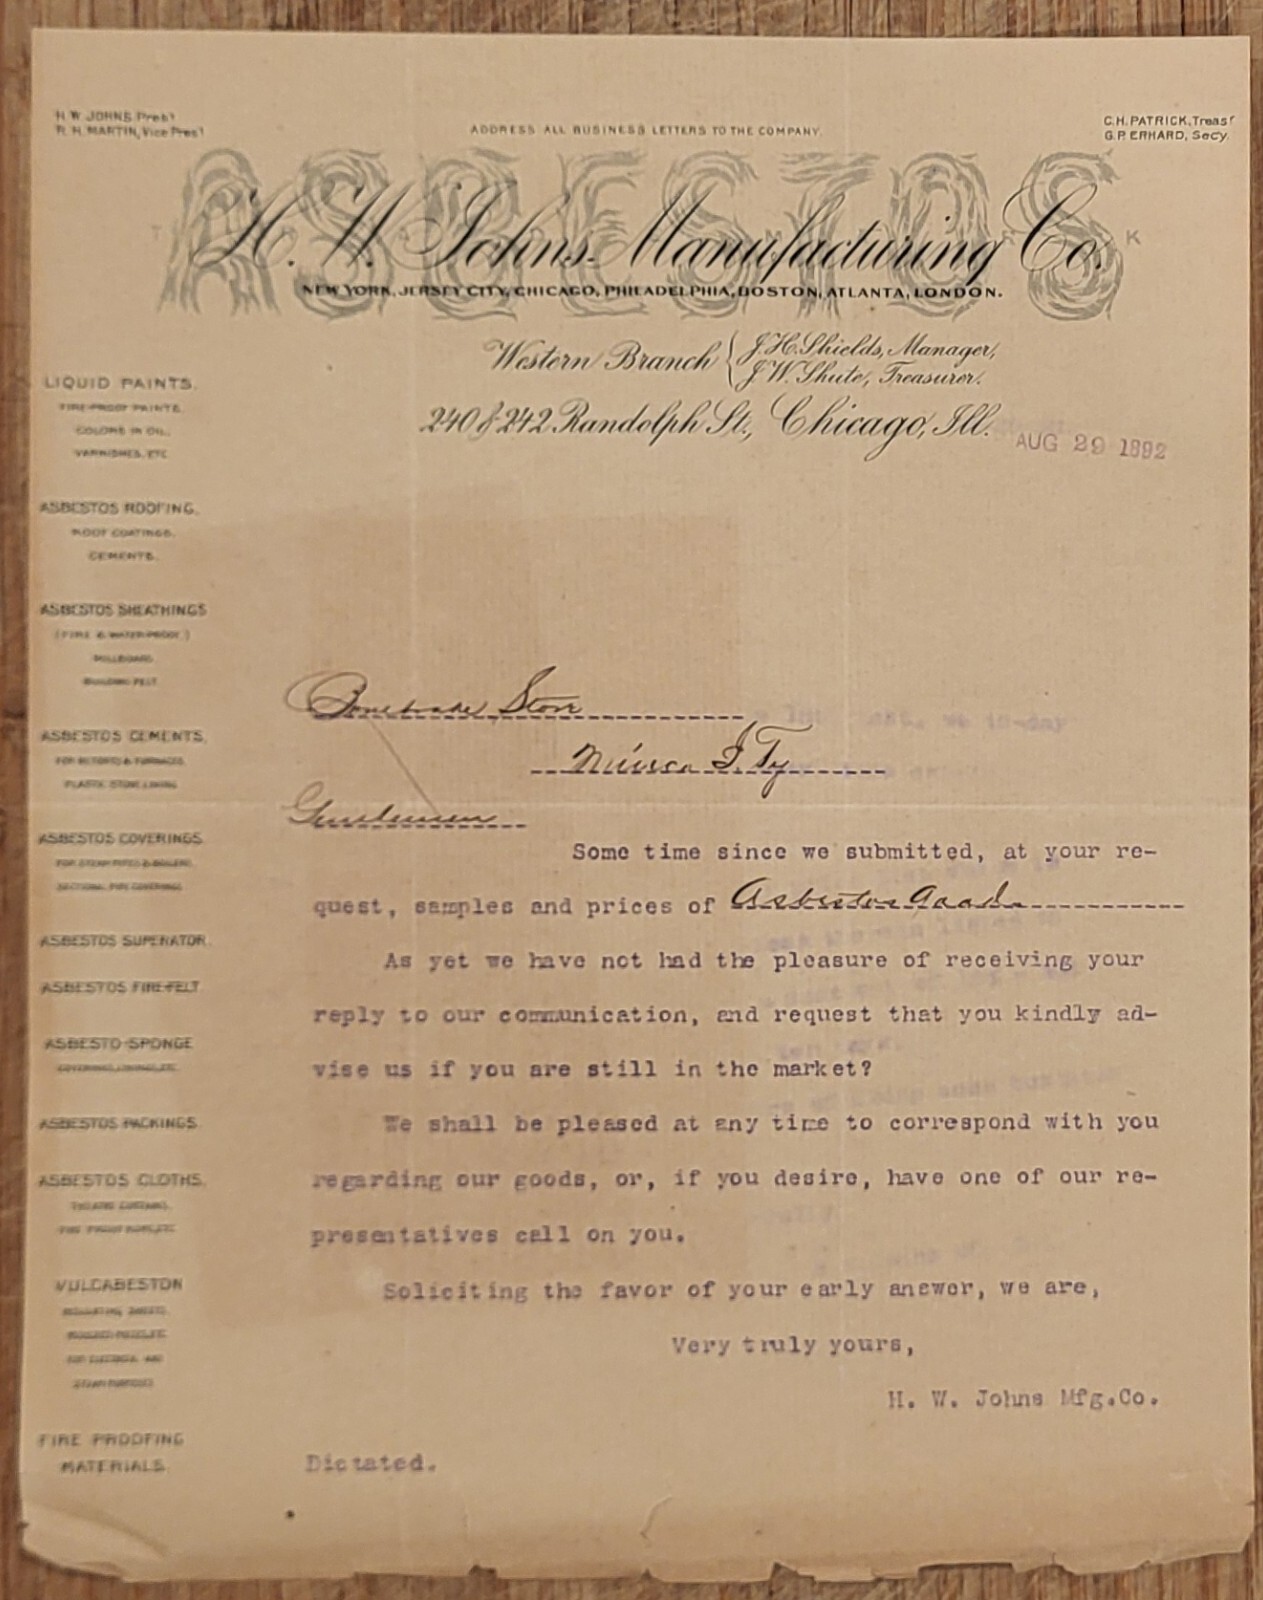 H. W. JOHNS, Pres't
R. H. MARTIN, Vice Pres't
ADDRESS ALL BUSINESS LETTERS TO THE COMPANY.
C. H. PATRICK, Treas'r
G. P. ERHARD, Secy.
ASBESTOS
H. W. Johns Manufacturing Co.
NEW YORK, JERSEY CITY, CHICAGO, PHILADELPHIA, BOSTON, ATLANTA, LONDON.
Western Branch { J. H. Shields, Manager,
J. W. Shute, Treasurer.
240 & 242 Randolph St., Chicago, Ill.
AUG 29 1892
LIQUID PAINTS.
FIRE-PROOF PAINTS.
COLORS IN OIL,
VARNISHES, ETC
ASBESTOS ROOFING.
ROOF COATINGS.
CEMENTS.
ASBESTOS SHEATHINGS
(FIRE & WATER-PROOF.)
MILLBOARD.
BUILDING FELT.
ASBESTOS CEMENTS,
FOR RETORTS & FURNACES.
PLASTIC STOVE LINING
ASBESTOS COVERINGS
FOR STEAM PIPES & BOILERS.
SECTIONAL PIPE COVERINGS.
ASBESTOS SUPERATOR.
ASBESTOS FIRE-FELT
ASBESTO-SPONGE
COVERINGS, LININGS, ETC.
ASBESTOS PACKINGS
ASBESTOS CLOTHS,
THEATRE CURTAINS,
FIRE PROOF ROPE, ETC
VULCABESTON
MOULDED PIECES, ETC
FOR ELECTRICAL AND
STEAM PURPOSES
FIRE PROOFING
MATERIALS.
Store
Gentlemen
Some time since we submitted, at your re-
quest, samples and prices of Asbestos Goods
As yet we have not had the pleasure of receiving your
reply to our communication, and request that you kindly ad-
vise us if you are still in the market?
We shall be pleased at any time to correspond with you
regarding our goods, or, if you desire, have one of our re-
presentatives call on you.
Soliciting the favor of your early answer, we are,
Very truly yours,
H. W. Johns Mfg.Co.
Dictated.